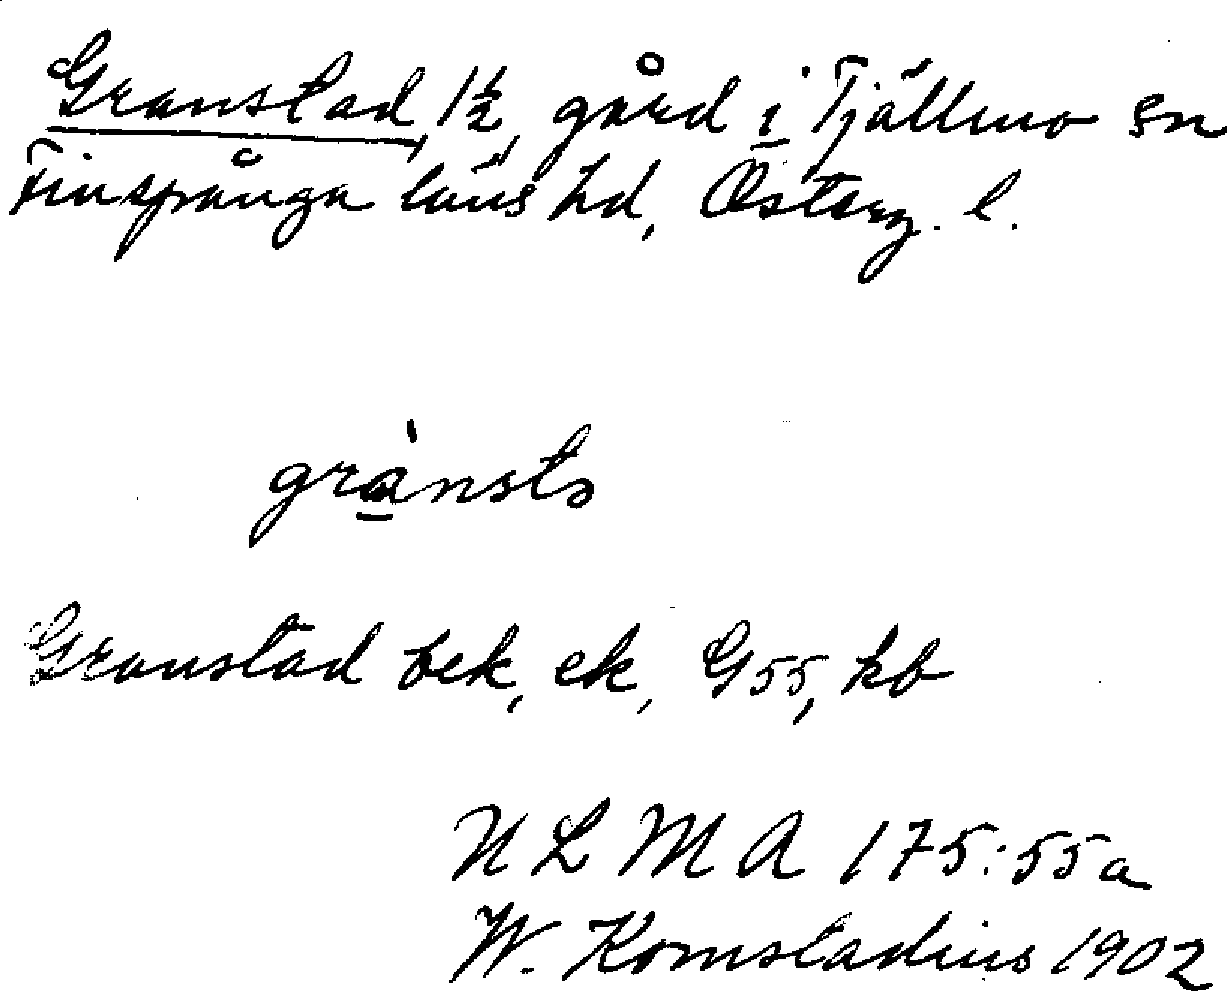 Granstad, 1½, gård i Tjällmo sn
Finspånga läns hd, Österg. l.
grànsta
Granstad bek, ek, G55, kb
ULMA 175:55a
W. Komstadius 1902